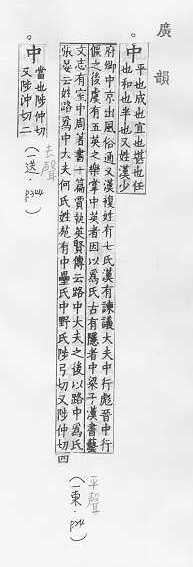 廣韻
。中 平也成也宜也堪也任
也和也半也又姓漢少
府卿中京出風俗通又漢複姓有七氏漢有諫議大夫中行彪晉中行
偃之後虞有五英之樂掌中英者因以為氏古有隱者中梁子漢書藝
文志有室中周著書十篇賈執英賢傳云路中大夫之後以路中為氏
張晏云姓路為中大夫何氏姓苑有中壘氏中野氏陟弓切又陟仲切四
平聲
(一東·p24)
。中 當也陟仲切
又陟沖切二
去聲
(一送·p344)